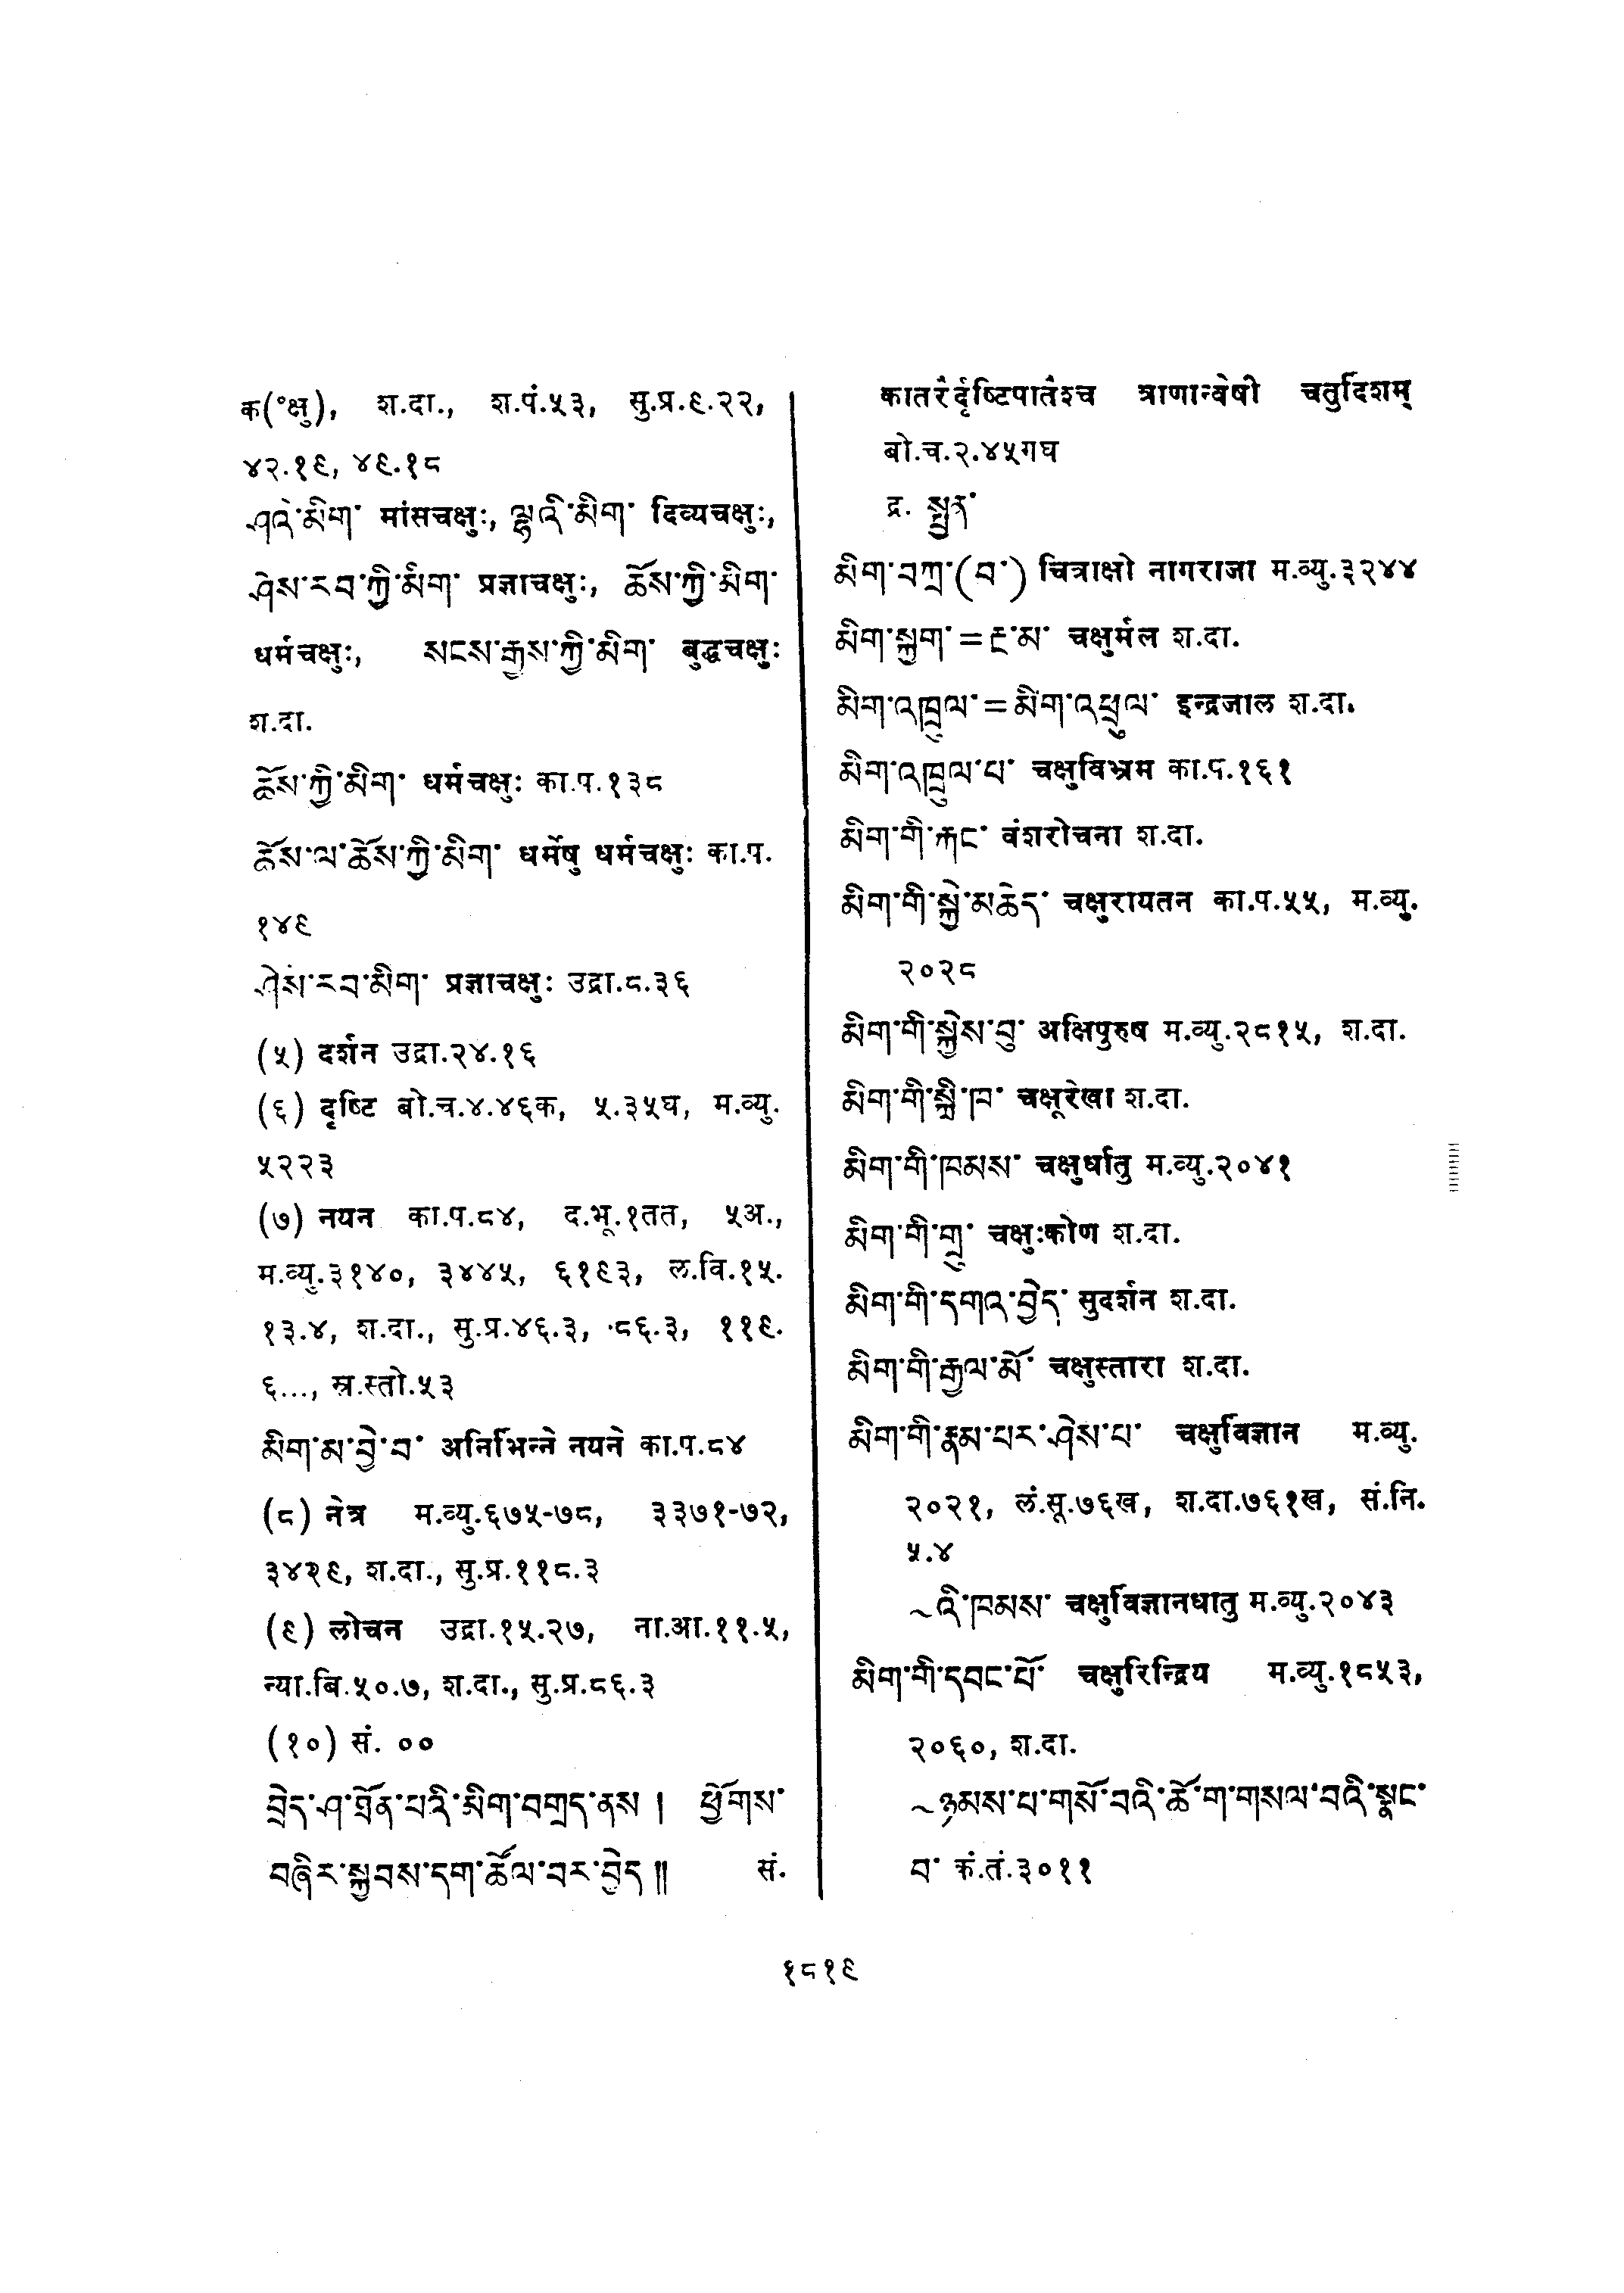 क(°क्षु), श.दा., श.पं.५३, सु.प्र.९.२२,
४२.१९, ४९.१८
ཤའི་མིག་ मांसचक्षुः, ལྷའི་མིག་ दिव्यचक्षुः,
ཤེས་རབ་ཀྱི་མིག་ प्रज्ञाचक्षुः, ཆོས་ཀྱི་མིག་
धर्मचक्षुः, སངས་རྒྱས་ཀྱི་མིག་ बुद्धचक्षुः
श.दा.
ཆོས་ཀྱི་མིག་ धर्मचक्षुः का.प.१३८
ཆོས་ལ་ཆོས་ཀྱི་མིག་ धर्मेषु धर्मचक्षुः का.प.
१४९
ཤེས་རབ་མིག་ प्रज्ञाचक्षुः उद्रा.८.३६
(५) दर्शन उद्रा.२४.१६
(६) दृष्टि बो.च.४.४६क, ५.३५घ, म.व्यु.
५२२३
(७) नयन का.प.८४, द.भू.१तत, ५अ.,
म.व्यु.३१४०, ३४४५, ६१९३, ल.वि.१५.
१३.४, श.दा., सु.प्र.४६.३, ८६.३, ११९.
६..., स्र.स्तो.५३
མིག་མ་བྱེ་བ་ अनिर्भिन्ने नयने का.प.८४
(८) नेत्र म.व्यु.६७५-७८, ३३७१-७२,
३४२९, श.दा., सु.प्र.११८.३
(९) लोचन उद्रा.१५.२७, ना.आ.११.५,
न्या.बि.५०.७, श.दा., सु.प्र.८६.३
(१०) सं. ००
བྲེད་ཤ་ཐོན་པའི་མིག་བགྲད་ནས། ཕྱོགས་
བཞིར་སྐྱབས་དག་ཚོལ་བར་བྱེད༎ सं.
कातरैर्दृष्टिपातैश्च त्राणान्वेषी चतुर्दिशम्
बो.च.२.४५गघ
द्र. སྤྱན་
མིག་བཀྲ་(བ་) चित्राक्षो नागराजा म.व्यु.३२४४
མིག་སྐྱག་=རྔ་མ་ चक्षुर्मल श.दा.
མིག་འཁྲུལ་=མིག་འཕྲུལ་ इन्द्रजाल श.दा.
མིག་འཁྲུལ་པ་ चक्षुविभ्रम का.प.१६१
མིག་གི་རྐང་ वंशरोचना श.दा.
མིག་གི་སྐྱེ་མཆེད་ चक्षुरायतन का.प.५५, म.व्यु.
२०२८
མིག་གི་སྐྱེས་བུ་ अक्षिपुरुष म.व्यु.२८१५, श.दा.
མིག་གི་སྐྲི་ཁ་ चक्षूरेखा श.दा.
མིག་གི་ཁམས་ चक्षुर्धातु म.व्यु.२०४१
མིག་གི་གྲུ་ चक्षुःकोण श.दा.
མིག་གི་དགའ་བྱེད་ सुदर्शन श.दा.
མིག་གི་རྒྱལ་མོ་ चक्षुस्तारा श.दा.
མིག་གི་རྣམ་པར་ཤེས་པ་ चक्षुर्विज्ञान म.व्यु.
२०२१, लं.सू.७६ख, श.दा.७६१ख, सं.नि.
५.४
~འི་ཁམས་ चक्षुर्विज्ञानधातु म.व्यु.२०४३
མིག་གི་དབང་པོ་ चक्षुरिन्द्रिय म.व्यु.१८५३,
२०६०, श.दा.
~ཉམས་པ་གསོ་བའི་ཆོ་ག་གསལ་བའི་སྣང་
བ་ कं.तं.३०११
१८१९